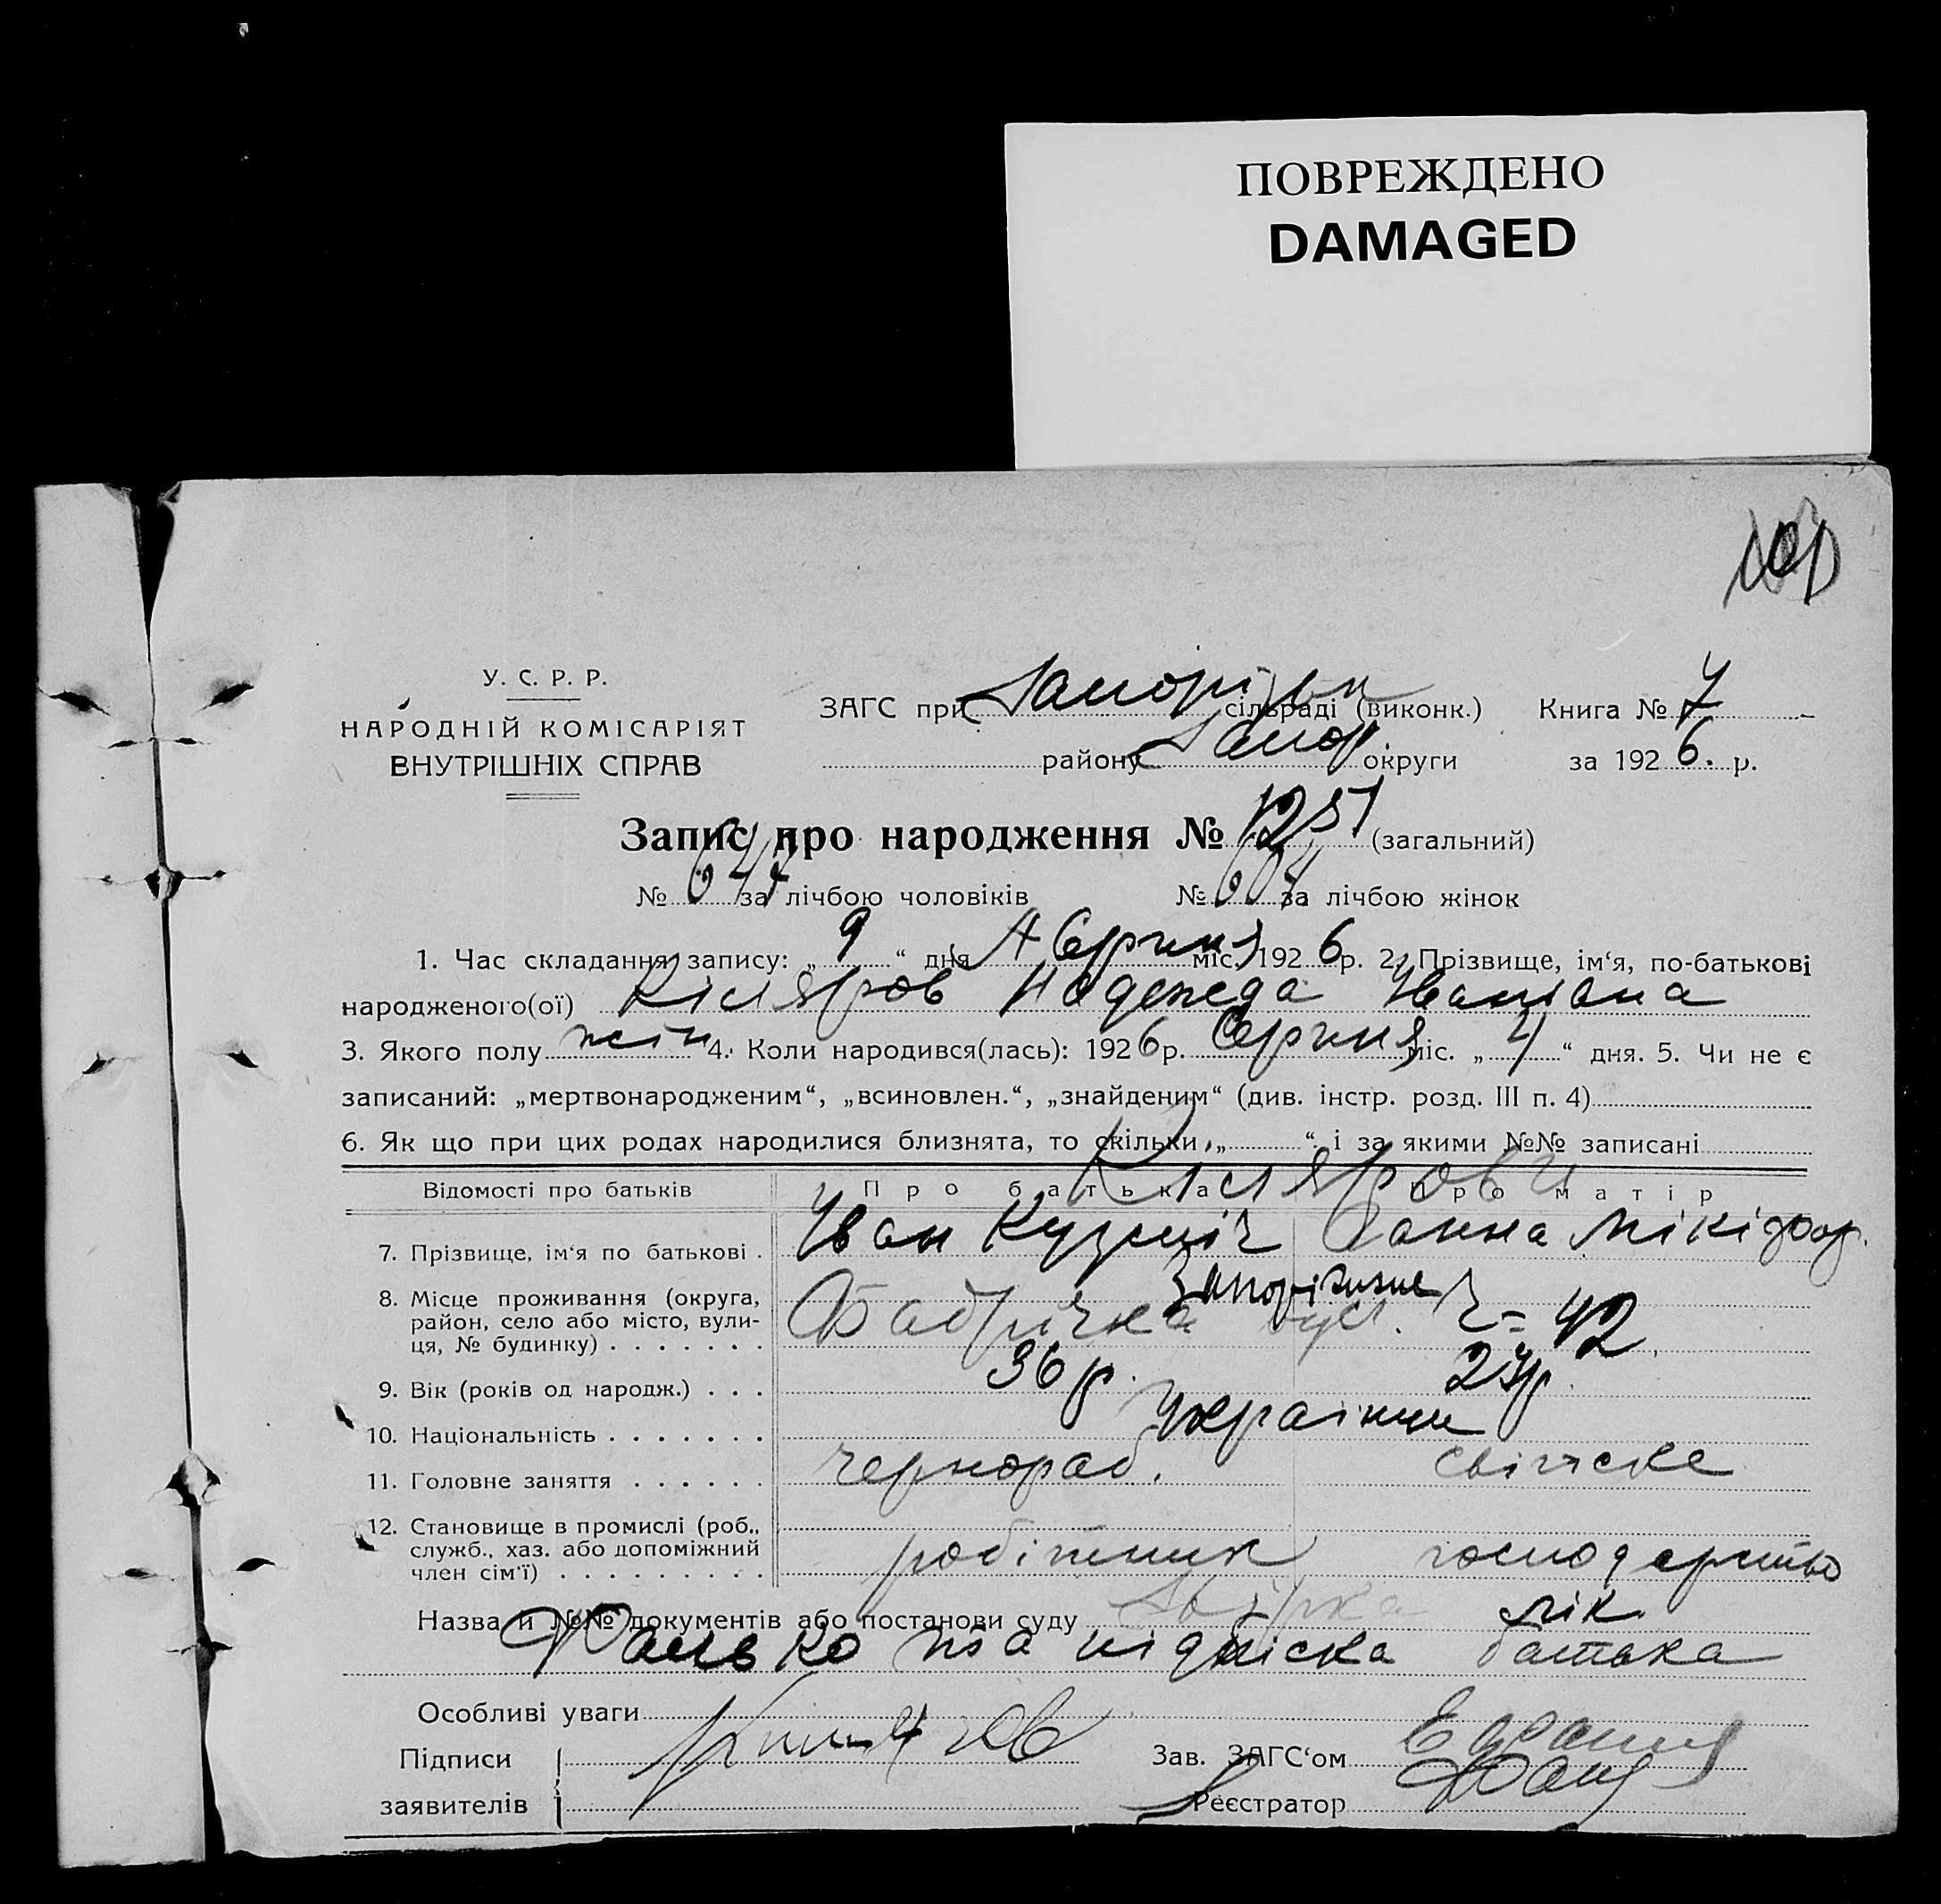 ПОВРЕЖДЕНО
DAMAGED
У. С. Р. Р.
НАРОДНІЙ КОМІСАРІЯТ
ВНУТРІШНІХ СПРАВ
ЗАГС при сільраді (виконк.) Книга № 7
району Запор. округи за 1926. р.
Запис про народження № 1251 (загальний)
№ 647 за лічбою чоловіків № 604 за лічбою жінок
1. Час складання запису: „ 9 “ дня Серпня міс. 1926 р. 2. Прізвище, ім‘я, по-батькові
народженого(ої) Кісляров Надежда Іванівна
3. Якого полу жін. 4. Коли народився(лась): 1926 р. Серпня міс. „ 4 “ дня. 5. Чи не є
записаний: „мертвонародженим“, „всиновлен.“, „знайденим“ (див. інстр. розд. III п. 4)
6. Як що при цих родах народилися близнята, то скільки „ “ і за якими №№ записані
Відомості про батьків Про батька Про матір
Кіслярови
7. Прізвище, ім‘я по батькові . Іван Кузміч Ганна Мікіфор.
8. Місце проживання (округа, Запоріжжє
район, село або місто, вули- Фабрічна вул. ч = 42
ця, № будинку) . . . . . . .
9. Вік (років од народж.) . . . 36 р. 27 р.
10. Національність . . . . . . . Українці
11. Головне заняття . . . . . . чернораб. свійське
12. Становище в промислі (роб.,
служб., хаз. або допоміжний робітник господарство
член сім‘ї) . . . . . . . . .
Назва и №№ документів або постанови суду лік
та підпіска батька
Особливі уваги
Підписи Зав. ЗАГС‘ом
заявителів Реєстратор